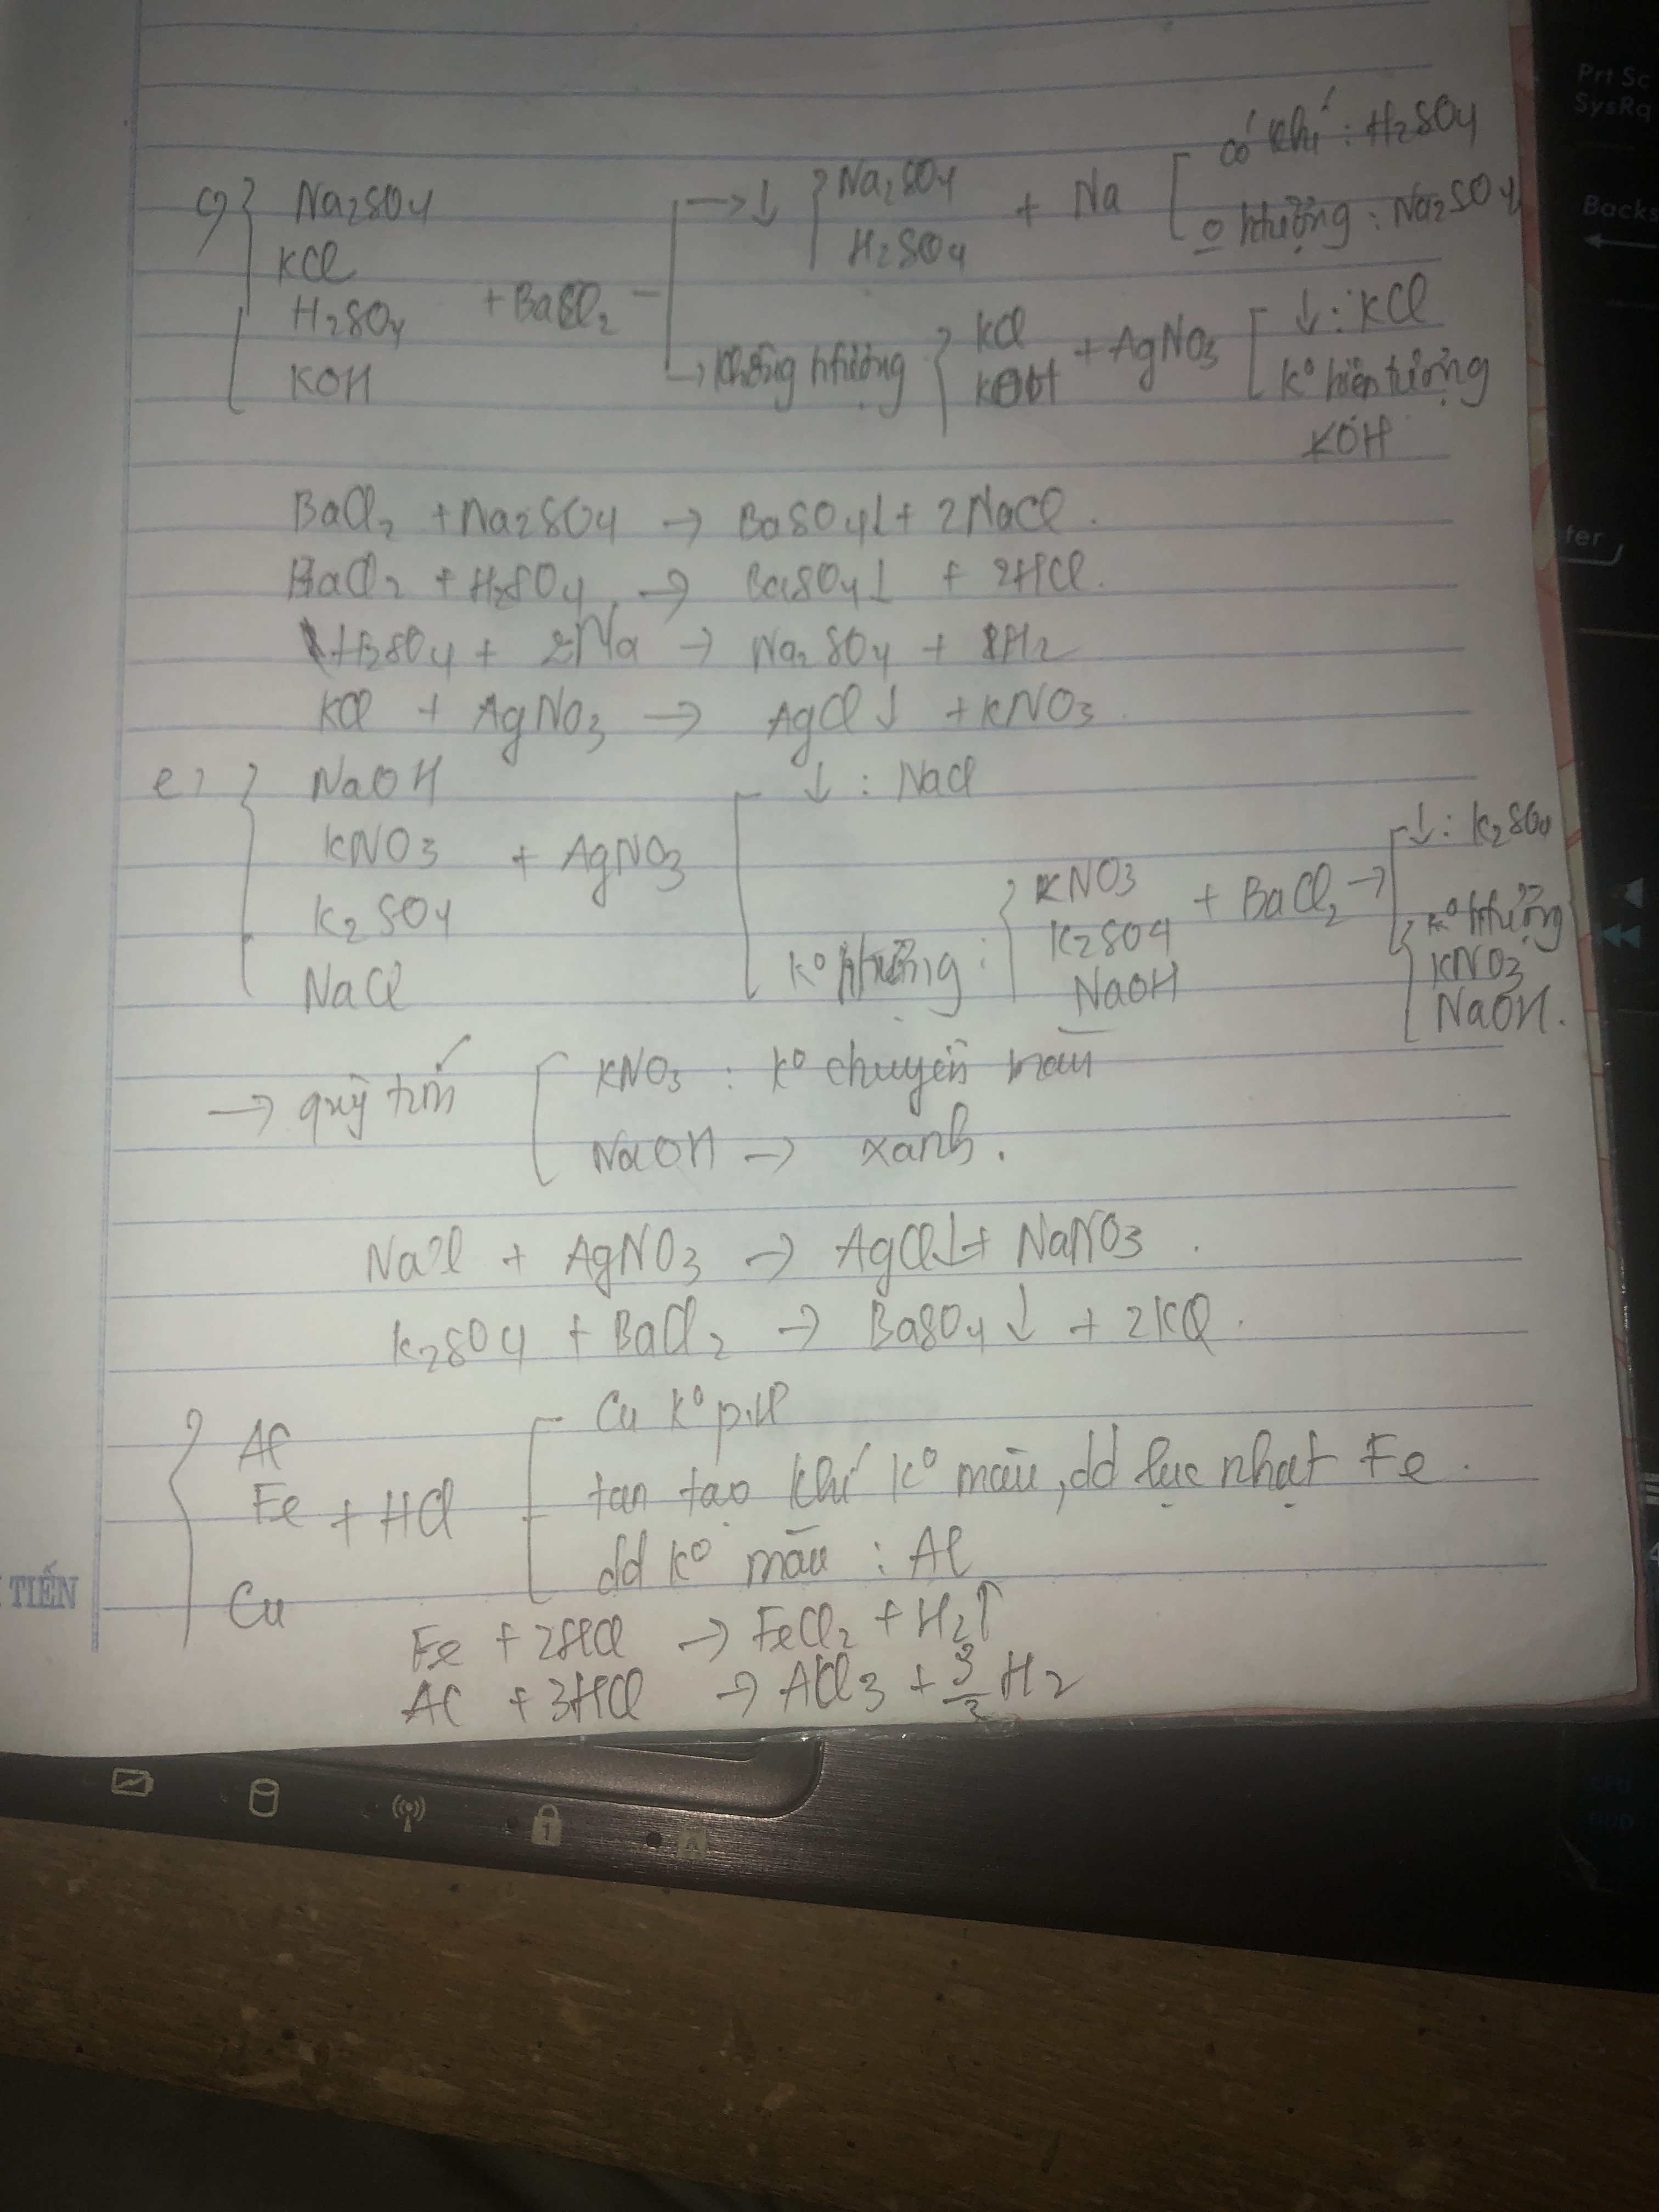 c) Na2SO4
KCl
H2SO4
KOH
+ BaCl2
→ ↓ Na2SO4
H2SO4
+ Na
có khí : H2SO4
0 htượng : Na2SO4
→ không htượng
KCl
KOH
+ AgNO3
↓ : KCl
k° hiện tượng
KOH
BaCl2 + Na2SO4 → BaSO4↓ + 2NaCl.
BaCl2 + H2SO4 → BaSO4↓ + 2HCl.
H2SO4 + 2Na → Na2SO4 + H2
KCl + AgNO3 → AgCl↓ + KNO3.
e) NaOH
KNO3
K2SO4
NaCl
+ AgNO3
↓ : NaCl
k° htượng :
KNO3
K2SO4
NaOH
+ BaCl2 →
↓ : K2SO4
k° htượng
KNO3
NaOH.
→ quỳ tím
KNO3 : k° chuyển màu
NaOH → xanh.
NaCl + AgNO3 → AgCl↓ + NaNO3.
K2SO4 + BaCl2 → BaSO4↓ + 2KCl.
Al
Fe + HCl
Cu
Cu k° p.ư
tan tạo khí k° màu, dd lục nhạt Fe.
dd k° màu : Al
Fe + 2HCl → FeCl2 + H2↑
Al + 3HCl → AlCl3 + 3/2 H2
TIẾN
Prt Sc
SysRq
Backs
ter